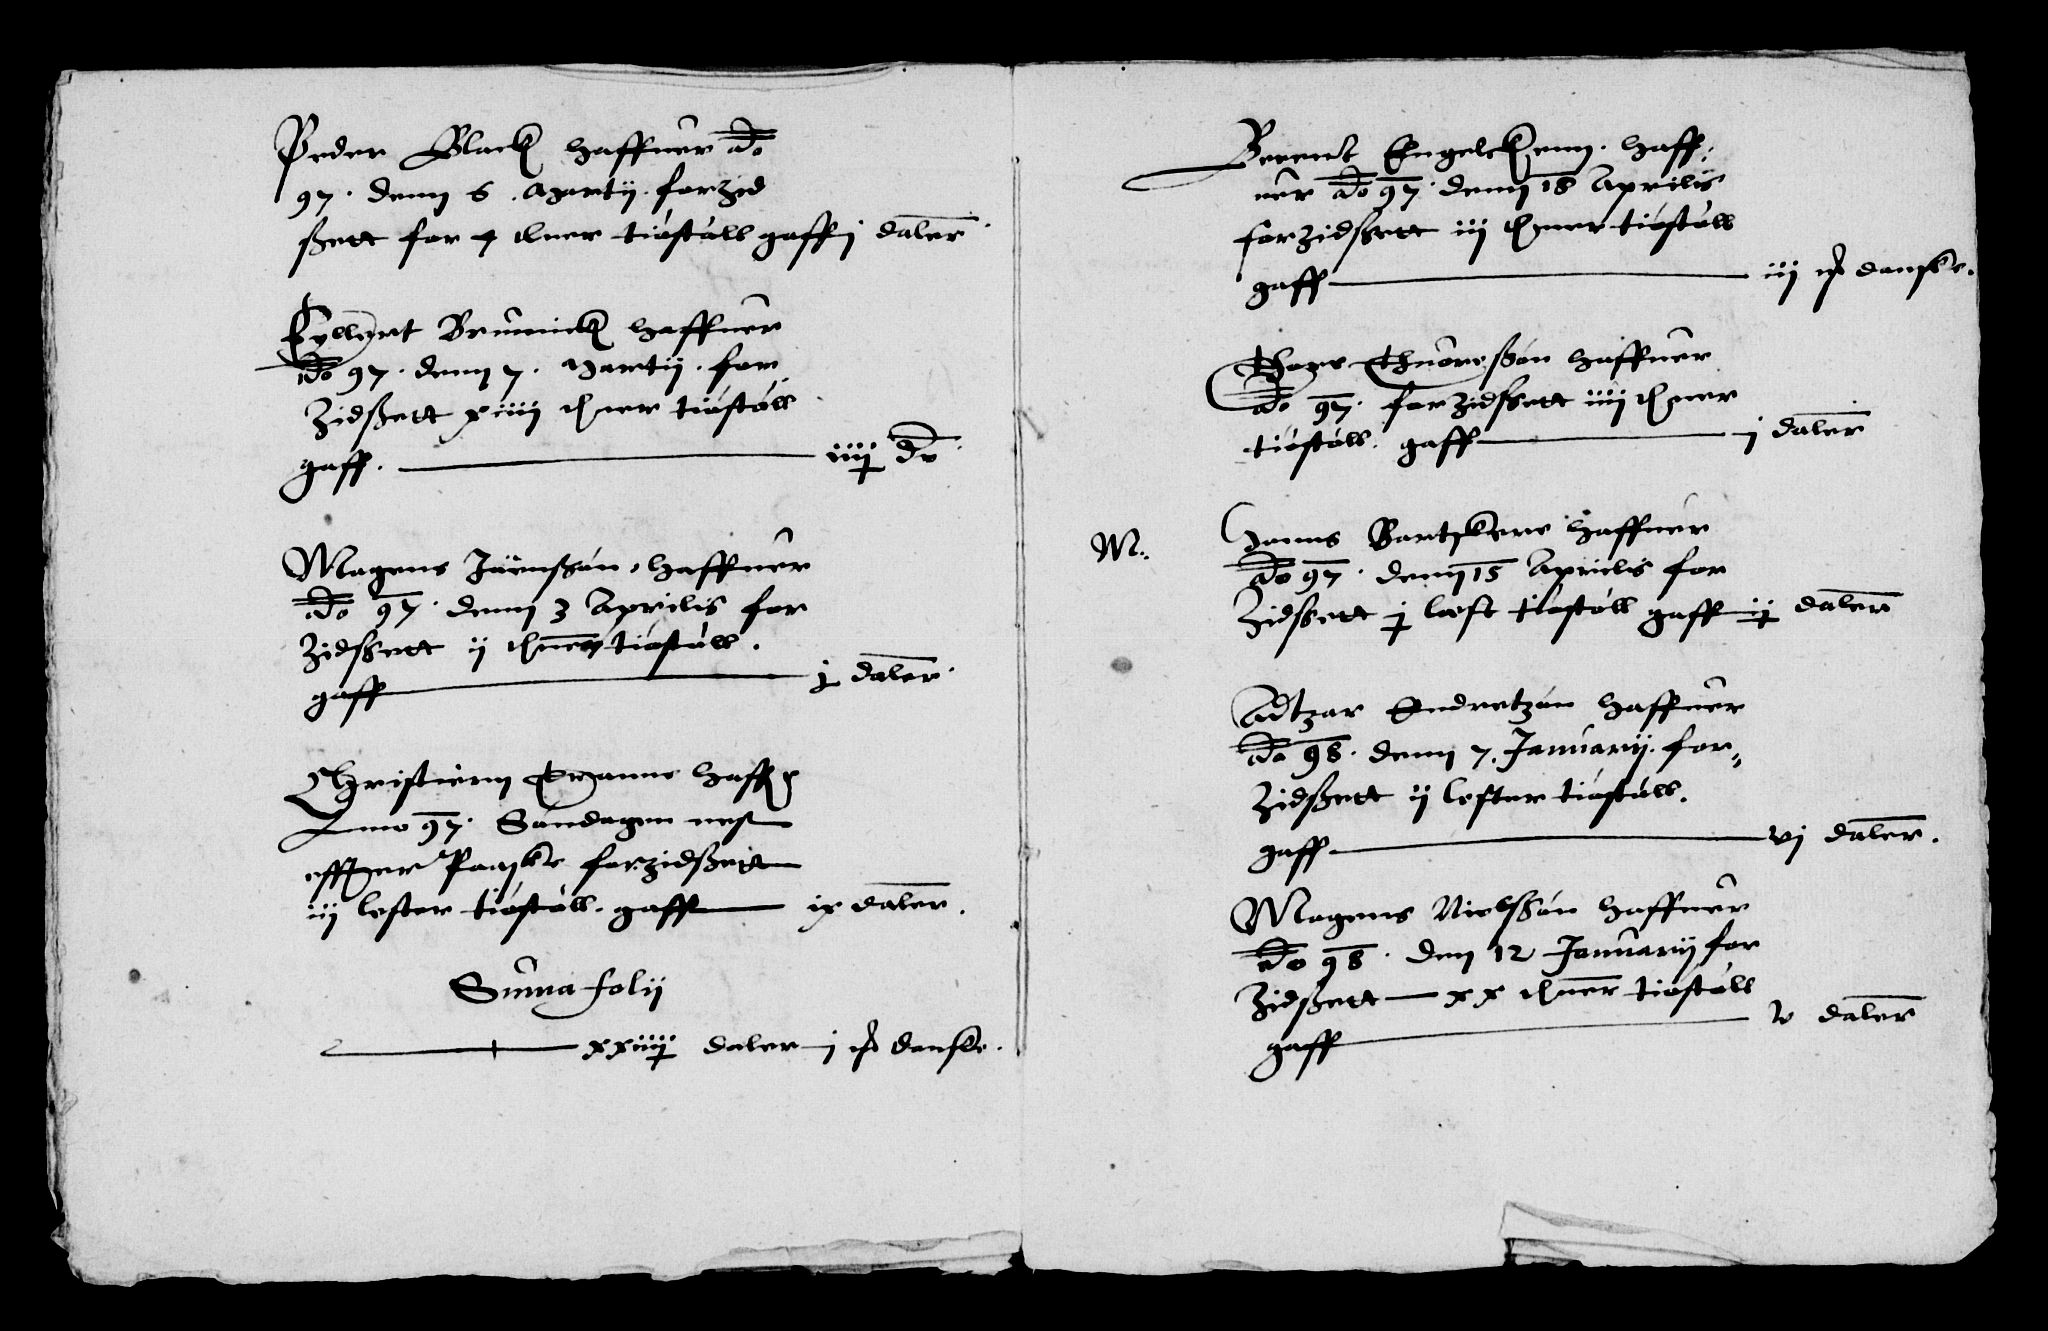 Peder Black haffuer Ao
97. denn 6. Martij. forzid
ßett for 4 thner tiöstöll gaff j daler
Eyllert Brunnick haffuer
Ao 97. denn 7. Martij. for
Zidßett xiiij thner tiöstöll
gaff. iiij do
Magens Jürenßön, haffuer
Ao 97. denn 3 Aprilis for
Zidßett ij thner tiöstöll.
gaff j daler.
Christiern haff
Anno 97. Söndagen nest
effther Paaske forzidßett
iij lester tiöstöll. gaff ix daler.
Suma folij
xxiiij daler j danske.
Berent Engelckenn. haff:
uer Ao 97. denn 18 Aprilis
forzidßett iij thner tiöstöll
gaff iij danske.
Thoreßön haffuer
Ao 97. forzidßett iiij thner
tiöstöll. gaff j daler
M.
Hanns Bartskere haffuer
Ao 97. denn 15 Aprilis for
Zidßett j lest tiöstöll gaff ij daler
Adtzar Endretzön haffuer
Ao 98. denn 7. Januarij. for-
Zidßett ij lester tiöstöll.
gaff vj daler.
Magens Nielßön haffuer
Ao 98. den 12 Januarij for
Zidßett xx thner tiöstöll
gaff v daler